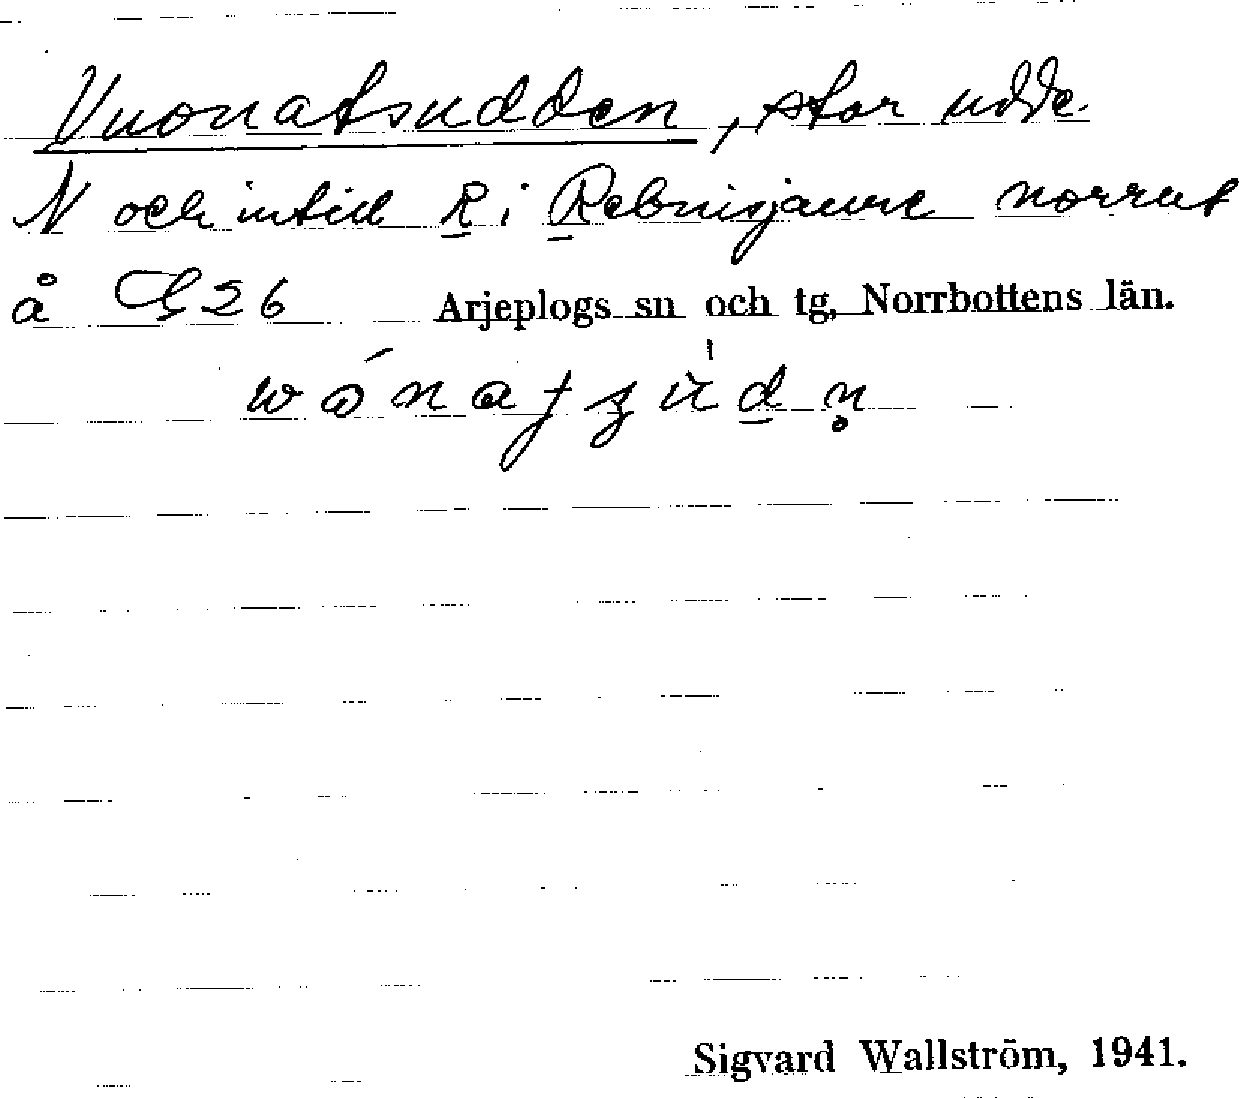 Vuonatsudden, stor udde
N och intill R i Rebnisjaure norrut
å G26 Arjeplogs sn och tg, Norrbottens län.
Sigvard Wallström, 1941.